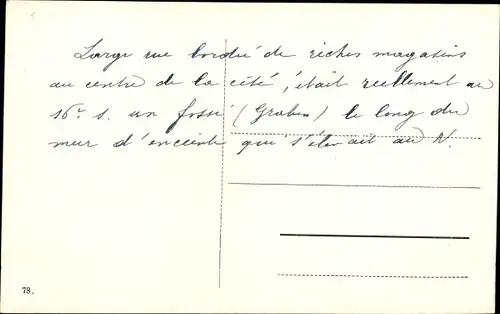 Large rue bordée de riches magasins
au centre de la cité, c'était reellement au
16e s. un fossé (Graben) le long du
mur d'enceinte qui s'élevait au N.
78.